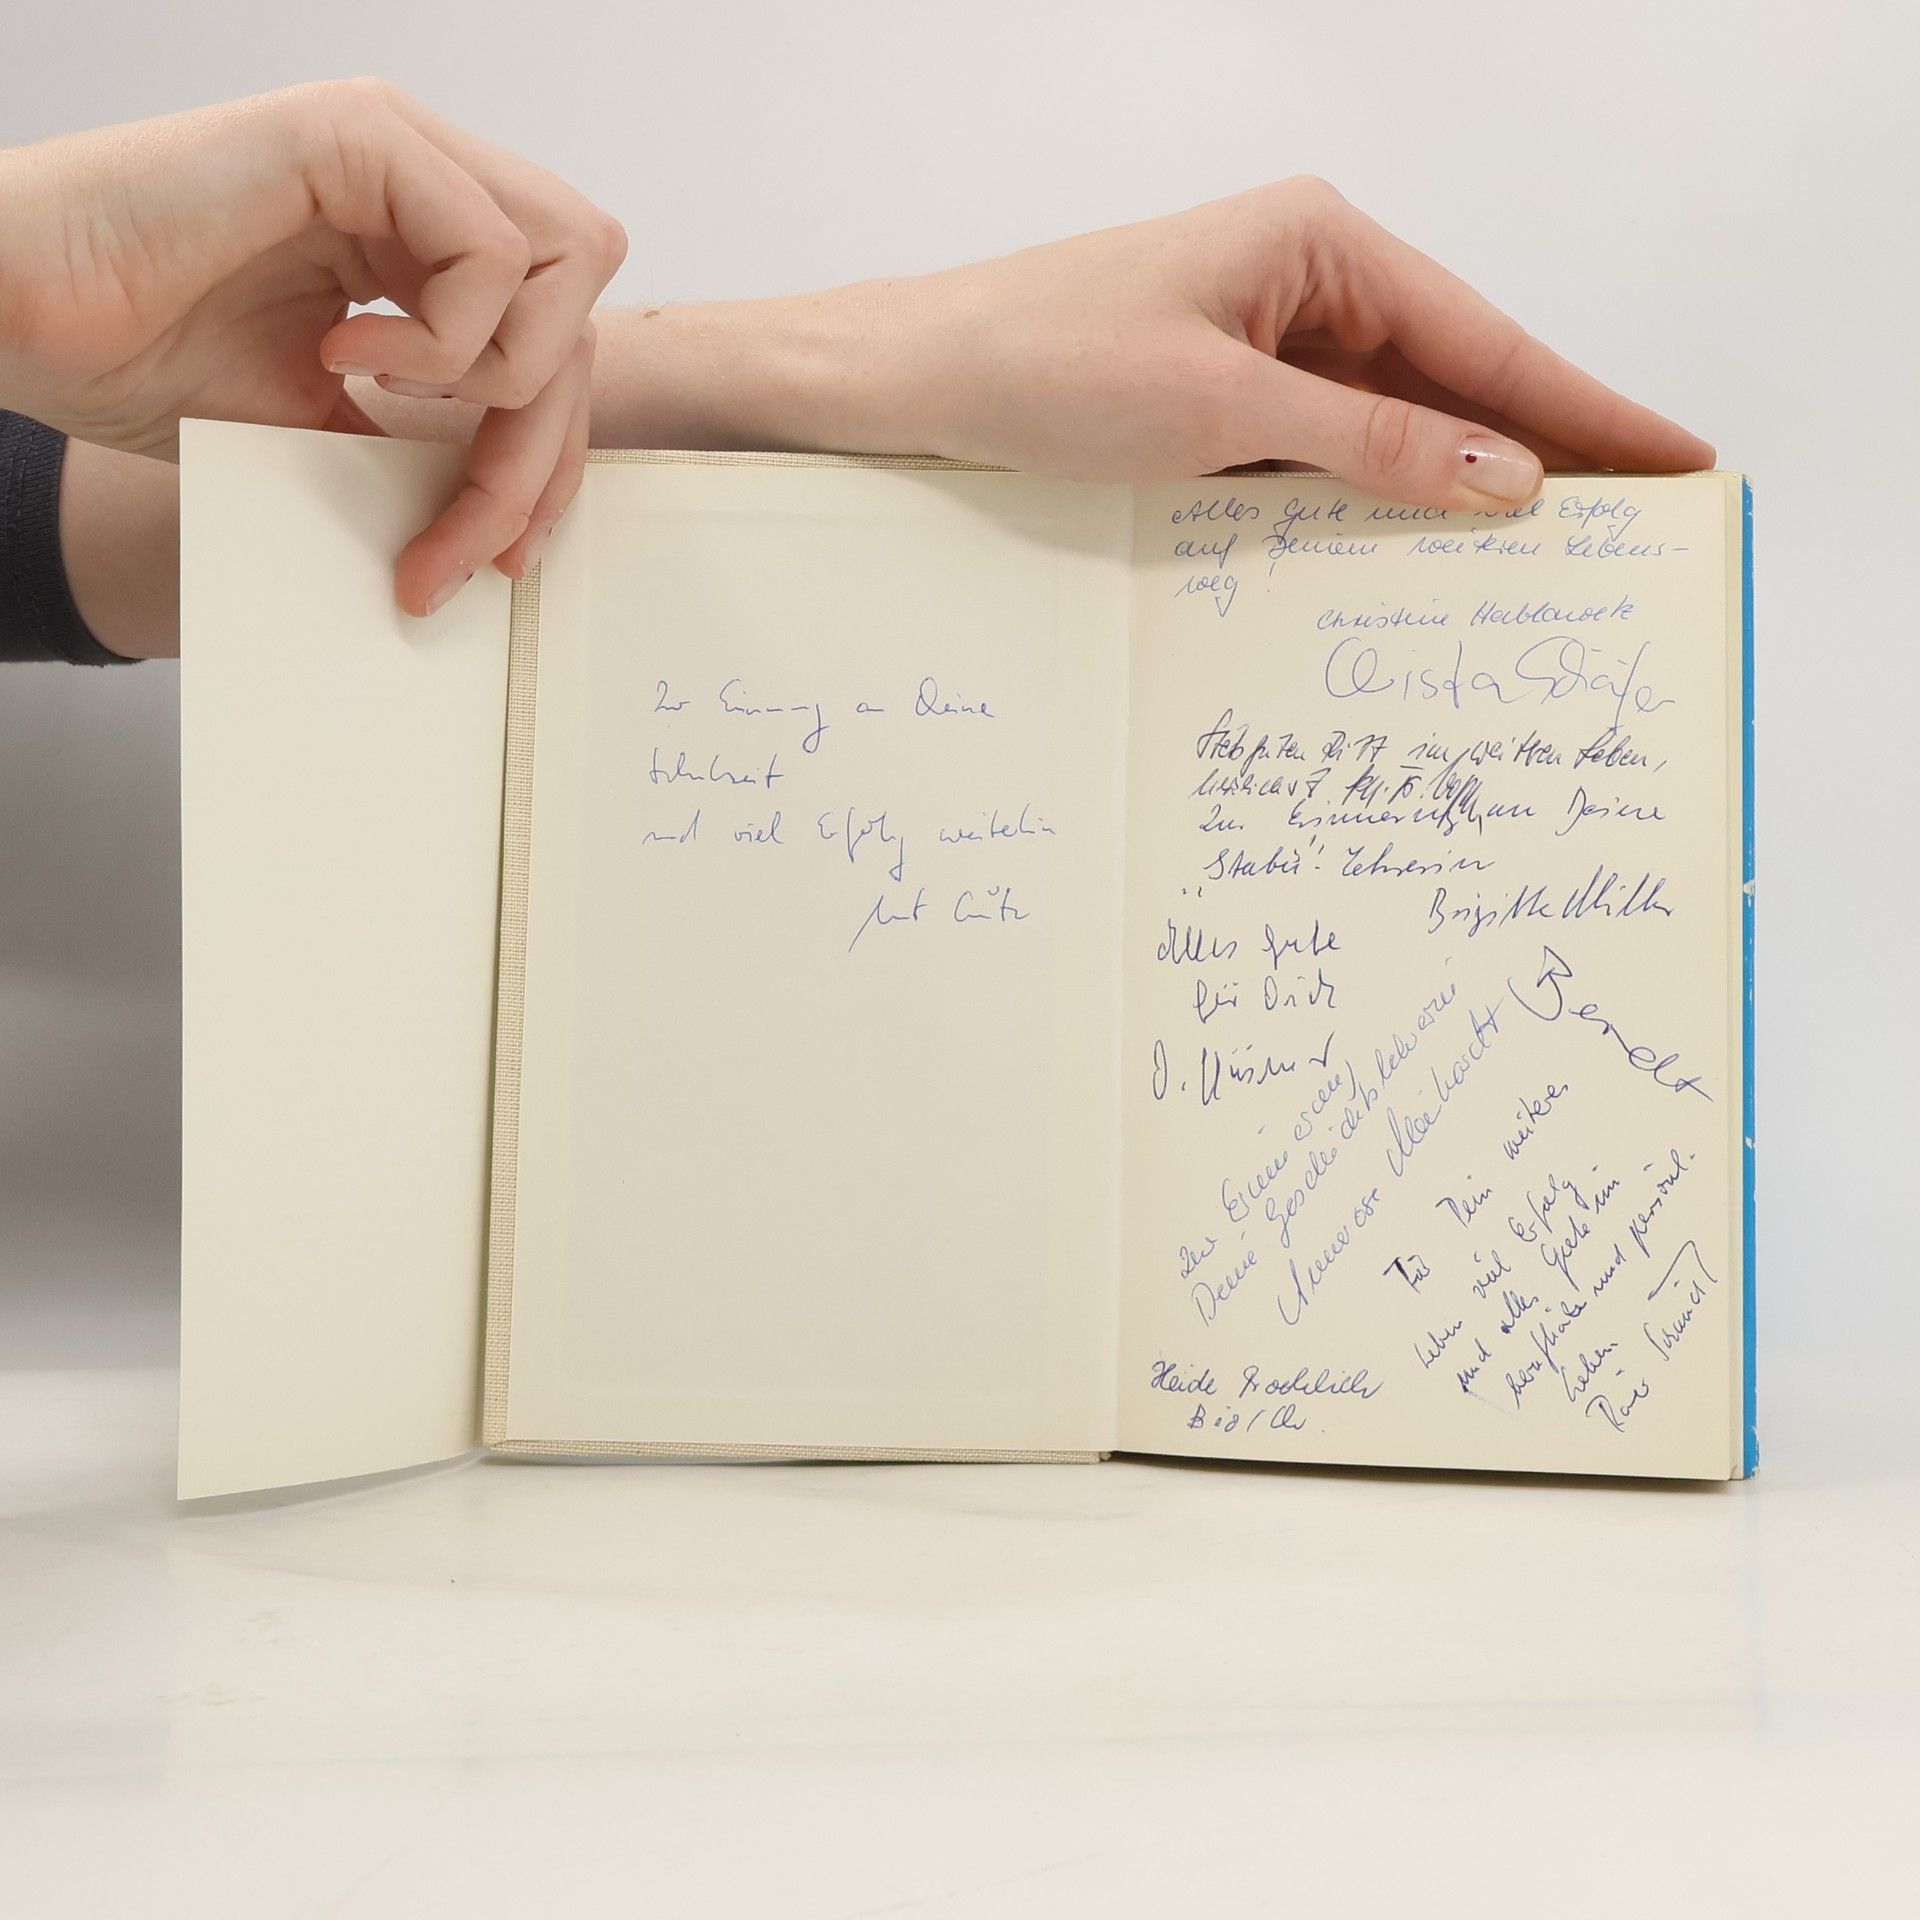 Zur Erinnerung an Deine
Schulzeit
und viel Erfolg weiterhin
Alles Gute und viel Erfolg
auf Deinem weiteren Lebens-
weg!
Christine
Christa Schäfer
im weiteren Leben,
Zur Erinnerung an Deine
"Stabü"! Lehrerin
Brigitte Müller
Alles Gute
für Dich
Zur Erinnerung
Deine Geschichtslehrerin
Annerose
Für Dein weiteres
Leben viel Erfolg
und alles Gute im
beruflichen und persönl.
Leben.
Heide
Bio/Ch.